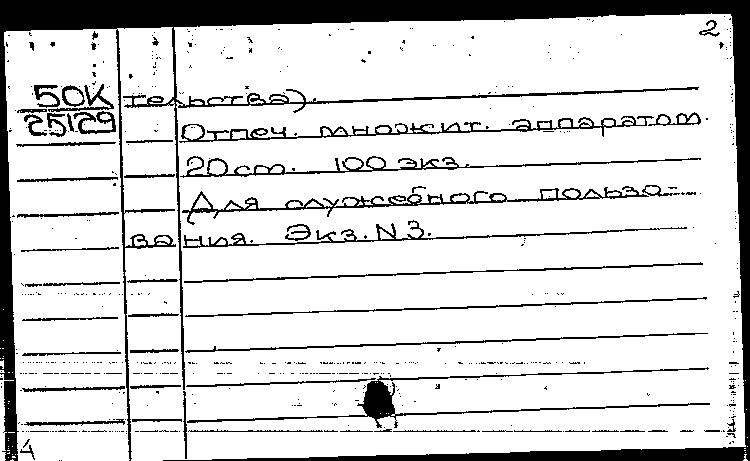 2
50К тельства).
25129 Отпеч. множит. аппаратом.
20 ст. 100 экз.
Для служебного пользо-
вания. Экз. N 3.
4